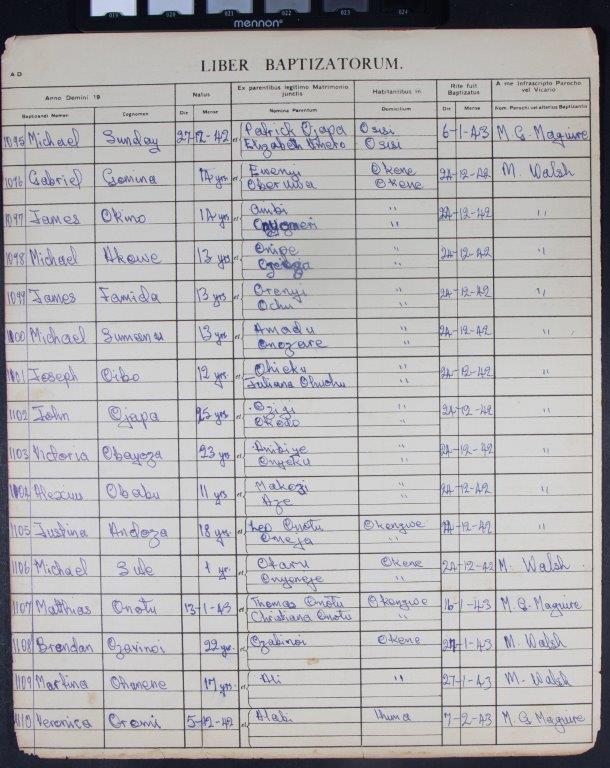 019 020 021 022 023 024
mennon
LIBER BAPTIZATORUM.
A D
Anno Domini 19 Natus Ex parentibus legitimo Matrimonio junctis Habitantibus in Rite fuit Baptizatus A me infrascripto Parocho vel Vicario
Baptizandi Nomen Cognomen Die Mense Nomina Parentum Domicilium Die Mense Nom. Parochi vel alterius Baptizantis
1095 Michael Sunday 27-12-42 Patrick Ojapa Osisi 6-1-43 M G Maguire
et Elizabeth Osisi
1096 Gabriel Gomina 14 yrs Enenyi Okene 24-12-42 M. Walsh
et Oberuwa Okene
1097 James Okino 14 yrs Ambi " 24-12-42 "
et "
1098 Michael Akowe 13 yrs Onipe " 24-12-42 "
et "
1099 James Famida 13 yrs Orenyi " 24-12-42 "
et Ochu "
1100 Michael Sumanu 13 yrs Amadu " 24-12-42 "
et Onozare "
1101 Joseph Oibo 12 yrs Ohieku " 24-12-42 "
et Juliana Ohuohu "
1102 John Ojapa 25 yrs Ozigi " 24-12-42 "
et Okedo "
1103 Victoria Obayoza 23 yrs Anibiye " 24-12-42 "
et Onyeku "
1104 Alexius Obabu 11 yrs Makozi " 24-12-42 "
et Aze "
1105 Justina Andoza 18 yrs. Leo Onotu Okengwe 24-12-42 "
et Oneja "
1106 Michael Sule 1 yr. Otaru Okene 24-12-42 M. Walsh
et Onyereje "
1107 Matthias Onotu 13-1-43 Thomas Onotu Okengwe 16-1-43 M. G. Maguire
et Christiana Onotu "
1108 Brendan Ozavinoi 22 yr. Ozabinoi Okene 27-1-43 M. Walsh
et
1109 Martina Ohunene 17 yrs. Ali " 27-1-43 M. Walsh
et
1110 Veronica Oromi 5-12-42 Alabi Ihima 7-2-43 M. G Maguire
et